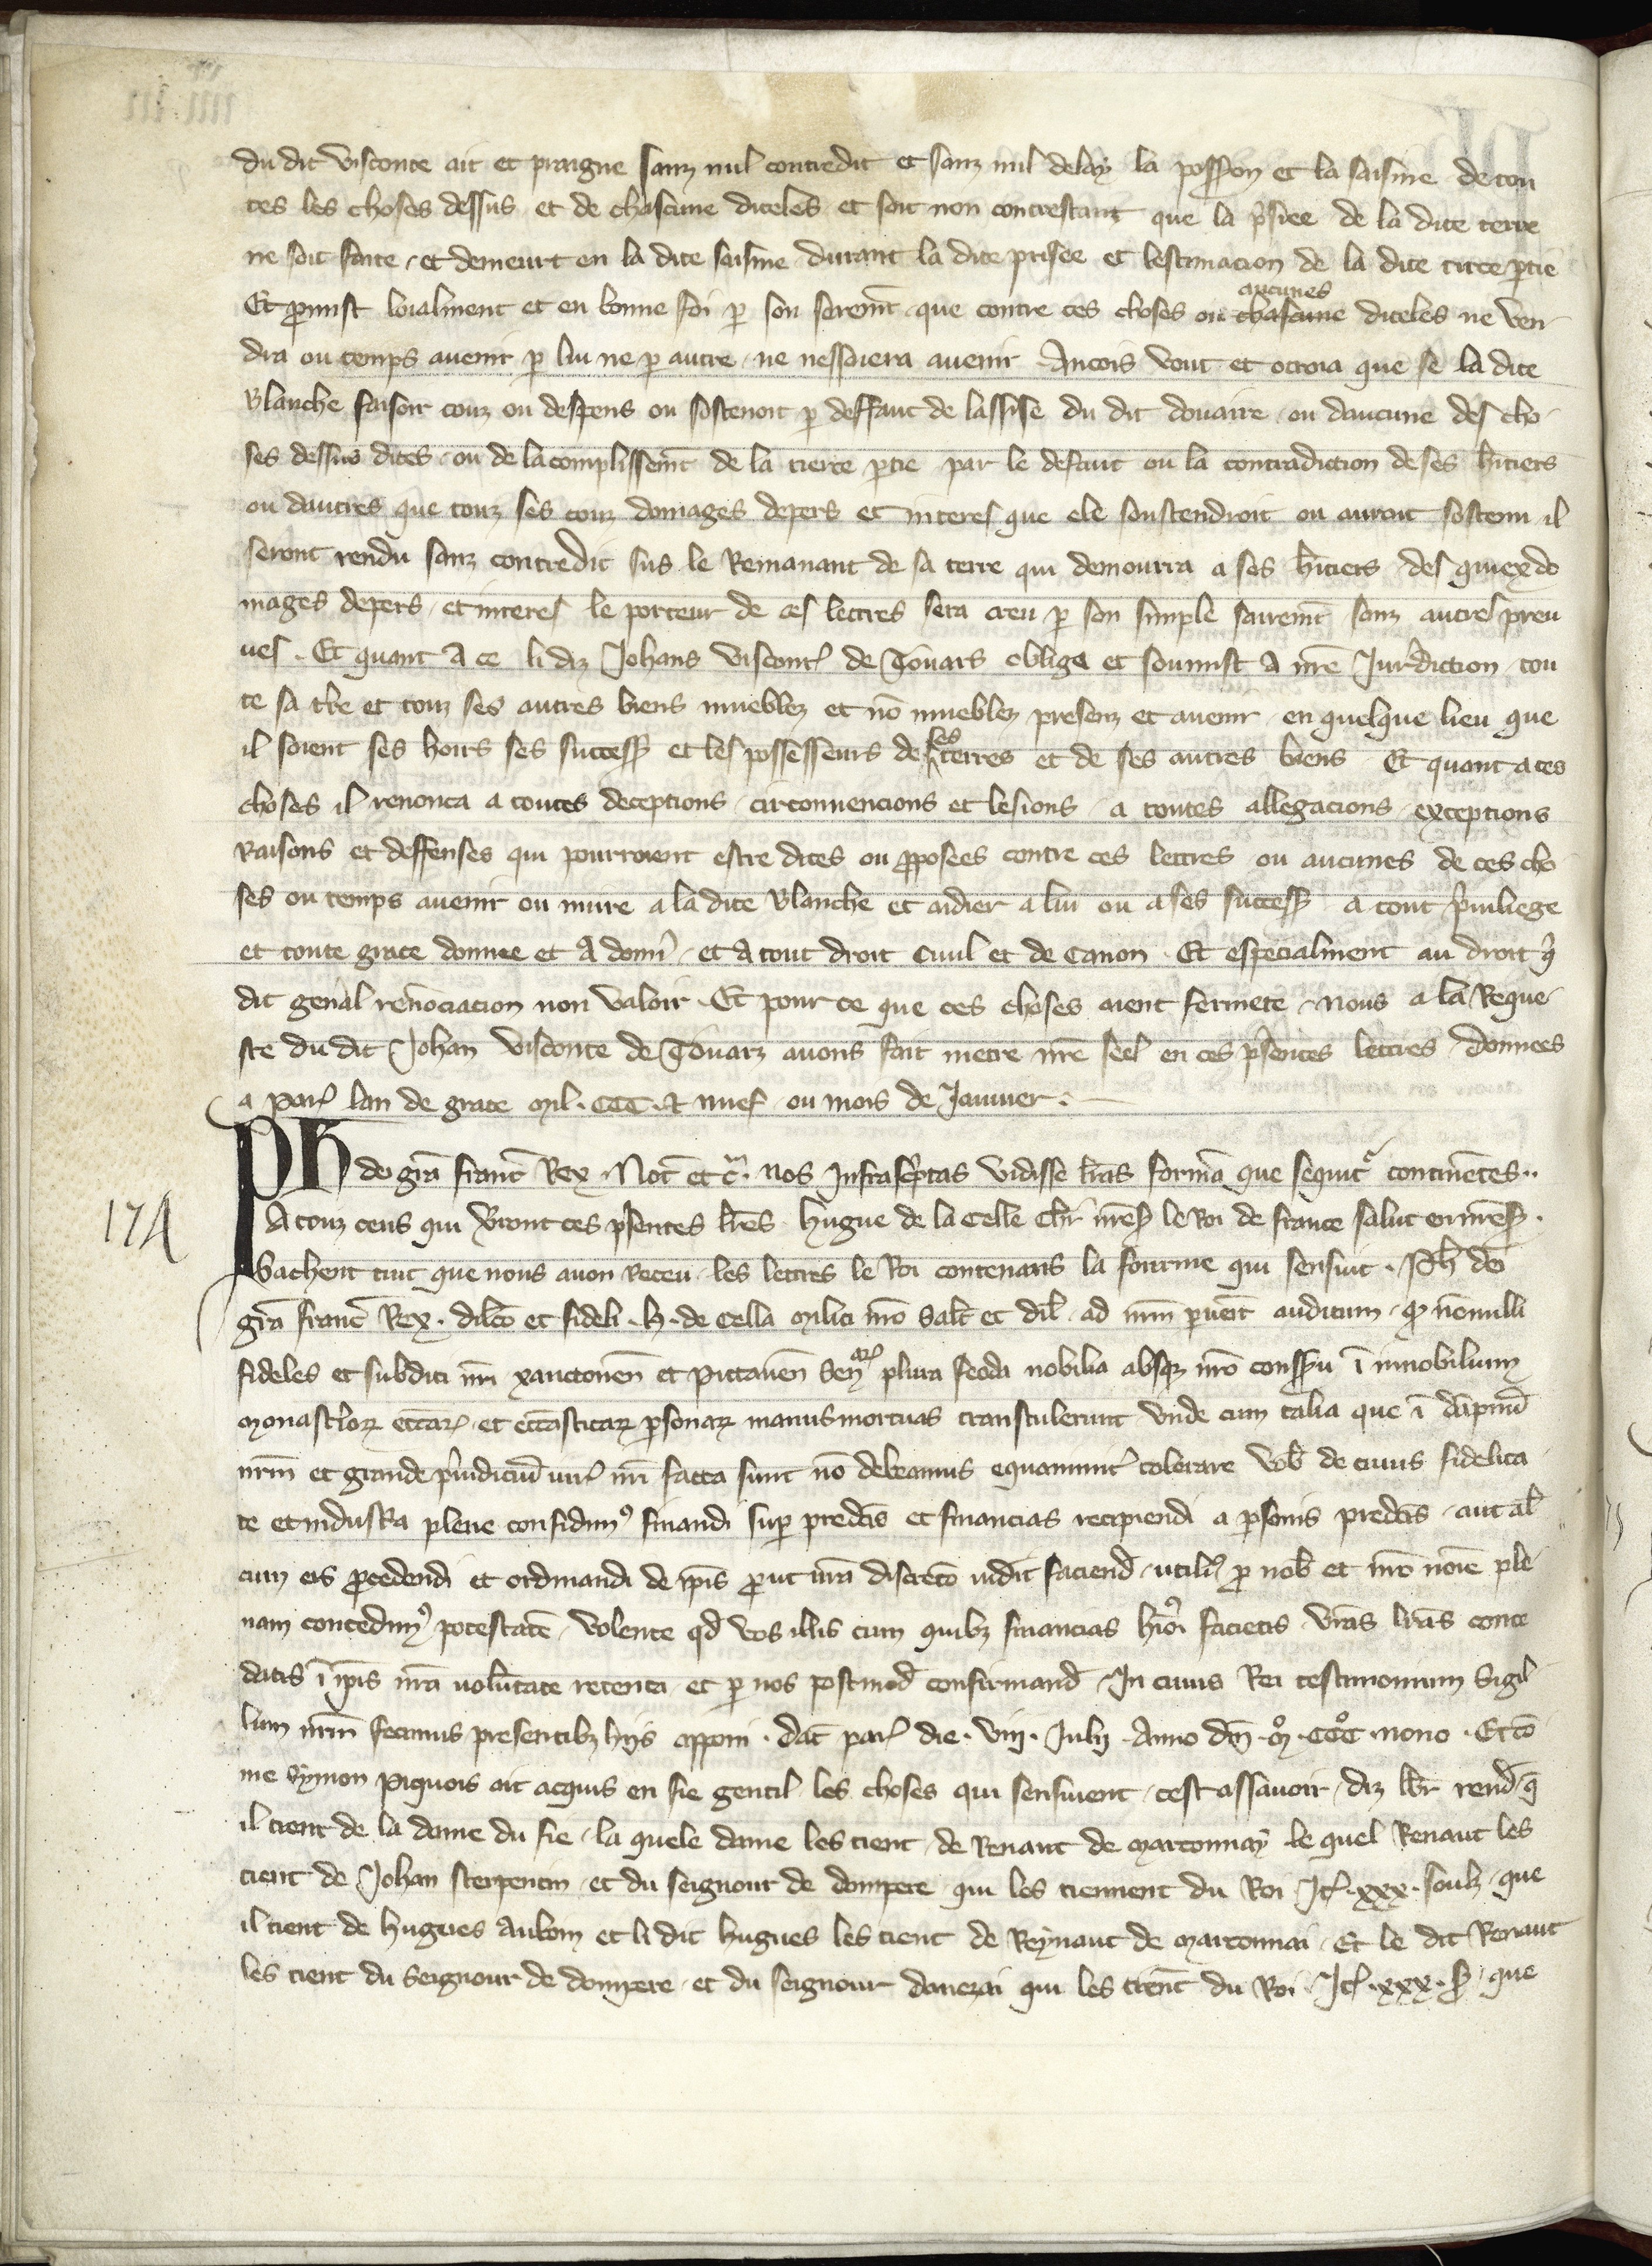 du dit visconte ait et praigne sanz nul contredit et sanz nul delay la possion et la saisine de tou
tes les choses dessus et de chascune diceles et soit non contrestant que la prisiee de la dite terre
ne soit faite et demeurt en la dite saisine durant la dite prisee et lestimacion de la dite tierce ptie
Et pmist loialment et en bonne foi p son seremt que contre ces choses ou chascune aucunes diceles ne ven
dra ou temps avenir p lui ne p autre ne nessaiera avenir Ancois vout et octroia que se la dite
Blanche faisoit couz ou despens ou sostenoit p deffaut de lassise du dit douaire ou daucune des cho
ses dessus dites ou de lacomplissemt de la tierce ptie par le defaut ou la contradiction de ses hitiers
ou dautres que touz ses couz domages depers et interes que ele soustendroit ou auroit sostenu il
seront rendu sanz contredit sus le Remanant de sa terre qui demourra a ses hitiers des quiex do
mages depers et interes le porteur de ces lettres sera creu p son simple sairemt sanz autres preu
ves . Et quant a ce li diz Johans viscont de Touars obliga et soumist a nre Jurdiction tou
te sa tre et touz ses autres biens muebles et no muebles presenz et avenir en quelque lieu que
il soient ses hoirs ses success et les possesseurs de ses terres et de ses autres biens Et quant a ces
choses il renonca a toutes deceptions circonvencions et lesions a toutes allegacions exceptions
Raisons et deffenses qui pourroient estre dites ou pposees contre ces lettres ou aucunes de ces cho
ses ou temps avenir ou nuire a la dite Blanche et aidier a lui ou a ses success a tout privilege
et toute grace donnee et a donn et a tout droit Civil et de Canon Et especialment au droit q
dit genal renociacion non valoir Et pour ce que ces choses aient fermete nous a la Reque
ste du dit Johan visconte de Touarz avons fait metre nre seel en ces psentes lettres donnees
a Par lan de grace mil . CCC . et nuef ou mois de Janvier .
174
Ph do gra franc Rex . Not etc . nos Infrascptas vidisse lras forma que sequit continetes
A touz ceus qui vront ces psentes lres hugue de la Celle Chr nres le Roi de france salut en nres .
Sachent tuit que nous avon receu les lettres le Roi contenans la fourme qui sensuit . Ph dei
gra franc Rex . dilco et fideli . h . de Cella militi nro salt et dil ad nrm pvent auditum q nonnulli
fideles et subditi nri xanctonen et Pictaven Sen plura feoda nobilia absqz nro conssu i inmobilium
monastior ecciar et ecciasticar psonar manus mortuas transtulerunt unde cum talia que i dapnu
nrm et grande piudiciu iur nri facta sunt no debeamus equanimit tolerare vob de cuius fidelita
te et industia plene confidim finandi sup predcis et financias recipiendi a psonis predcis aut al
cum eis pcedendi et ordinandi de ipis put vra discreto vidit faciend utili p nob et nro noie ple
nam concedim potestate volente qd vos illis cum quibz financias hioi facietis vras lras conce
datis i ipis nra volutate retenta et p nos postmod confirmand In cuius Rei testimonium Sigil
lum nrm fecimus presentibz hiis apponi . dat par die . viij . Julij Anno dni . m . CCC . nono . Et co
me Symon piquois ait acquis en fie gentil les choses qui sensivent cest assavoir diz lbr rend q
il tient de la dame du fie la quele dame les tient de Renaut de marconnay le quel Renaut les
tient de Johan sterpentin et du seignour de dompere qui les tiennent du Roi It . xxx . soulz que
il tient de hugues Aubom et li dit hugues les tient de Reynaut de marconnai Et le dit Renaut
les tient du Seignour de dompere et du seignour daneziai qui les tient du Roi It . xxx . s que